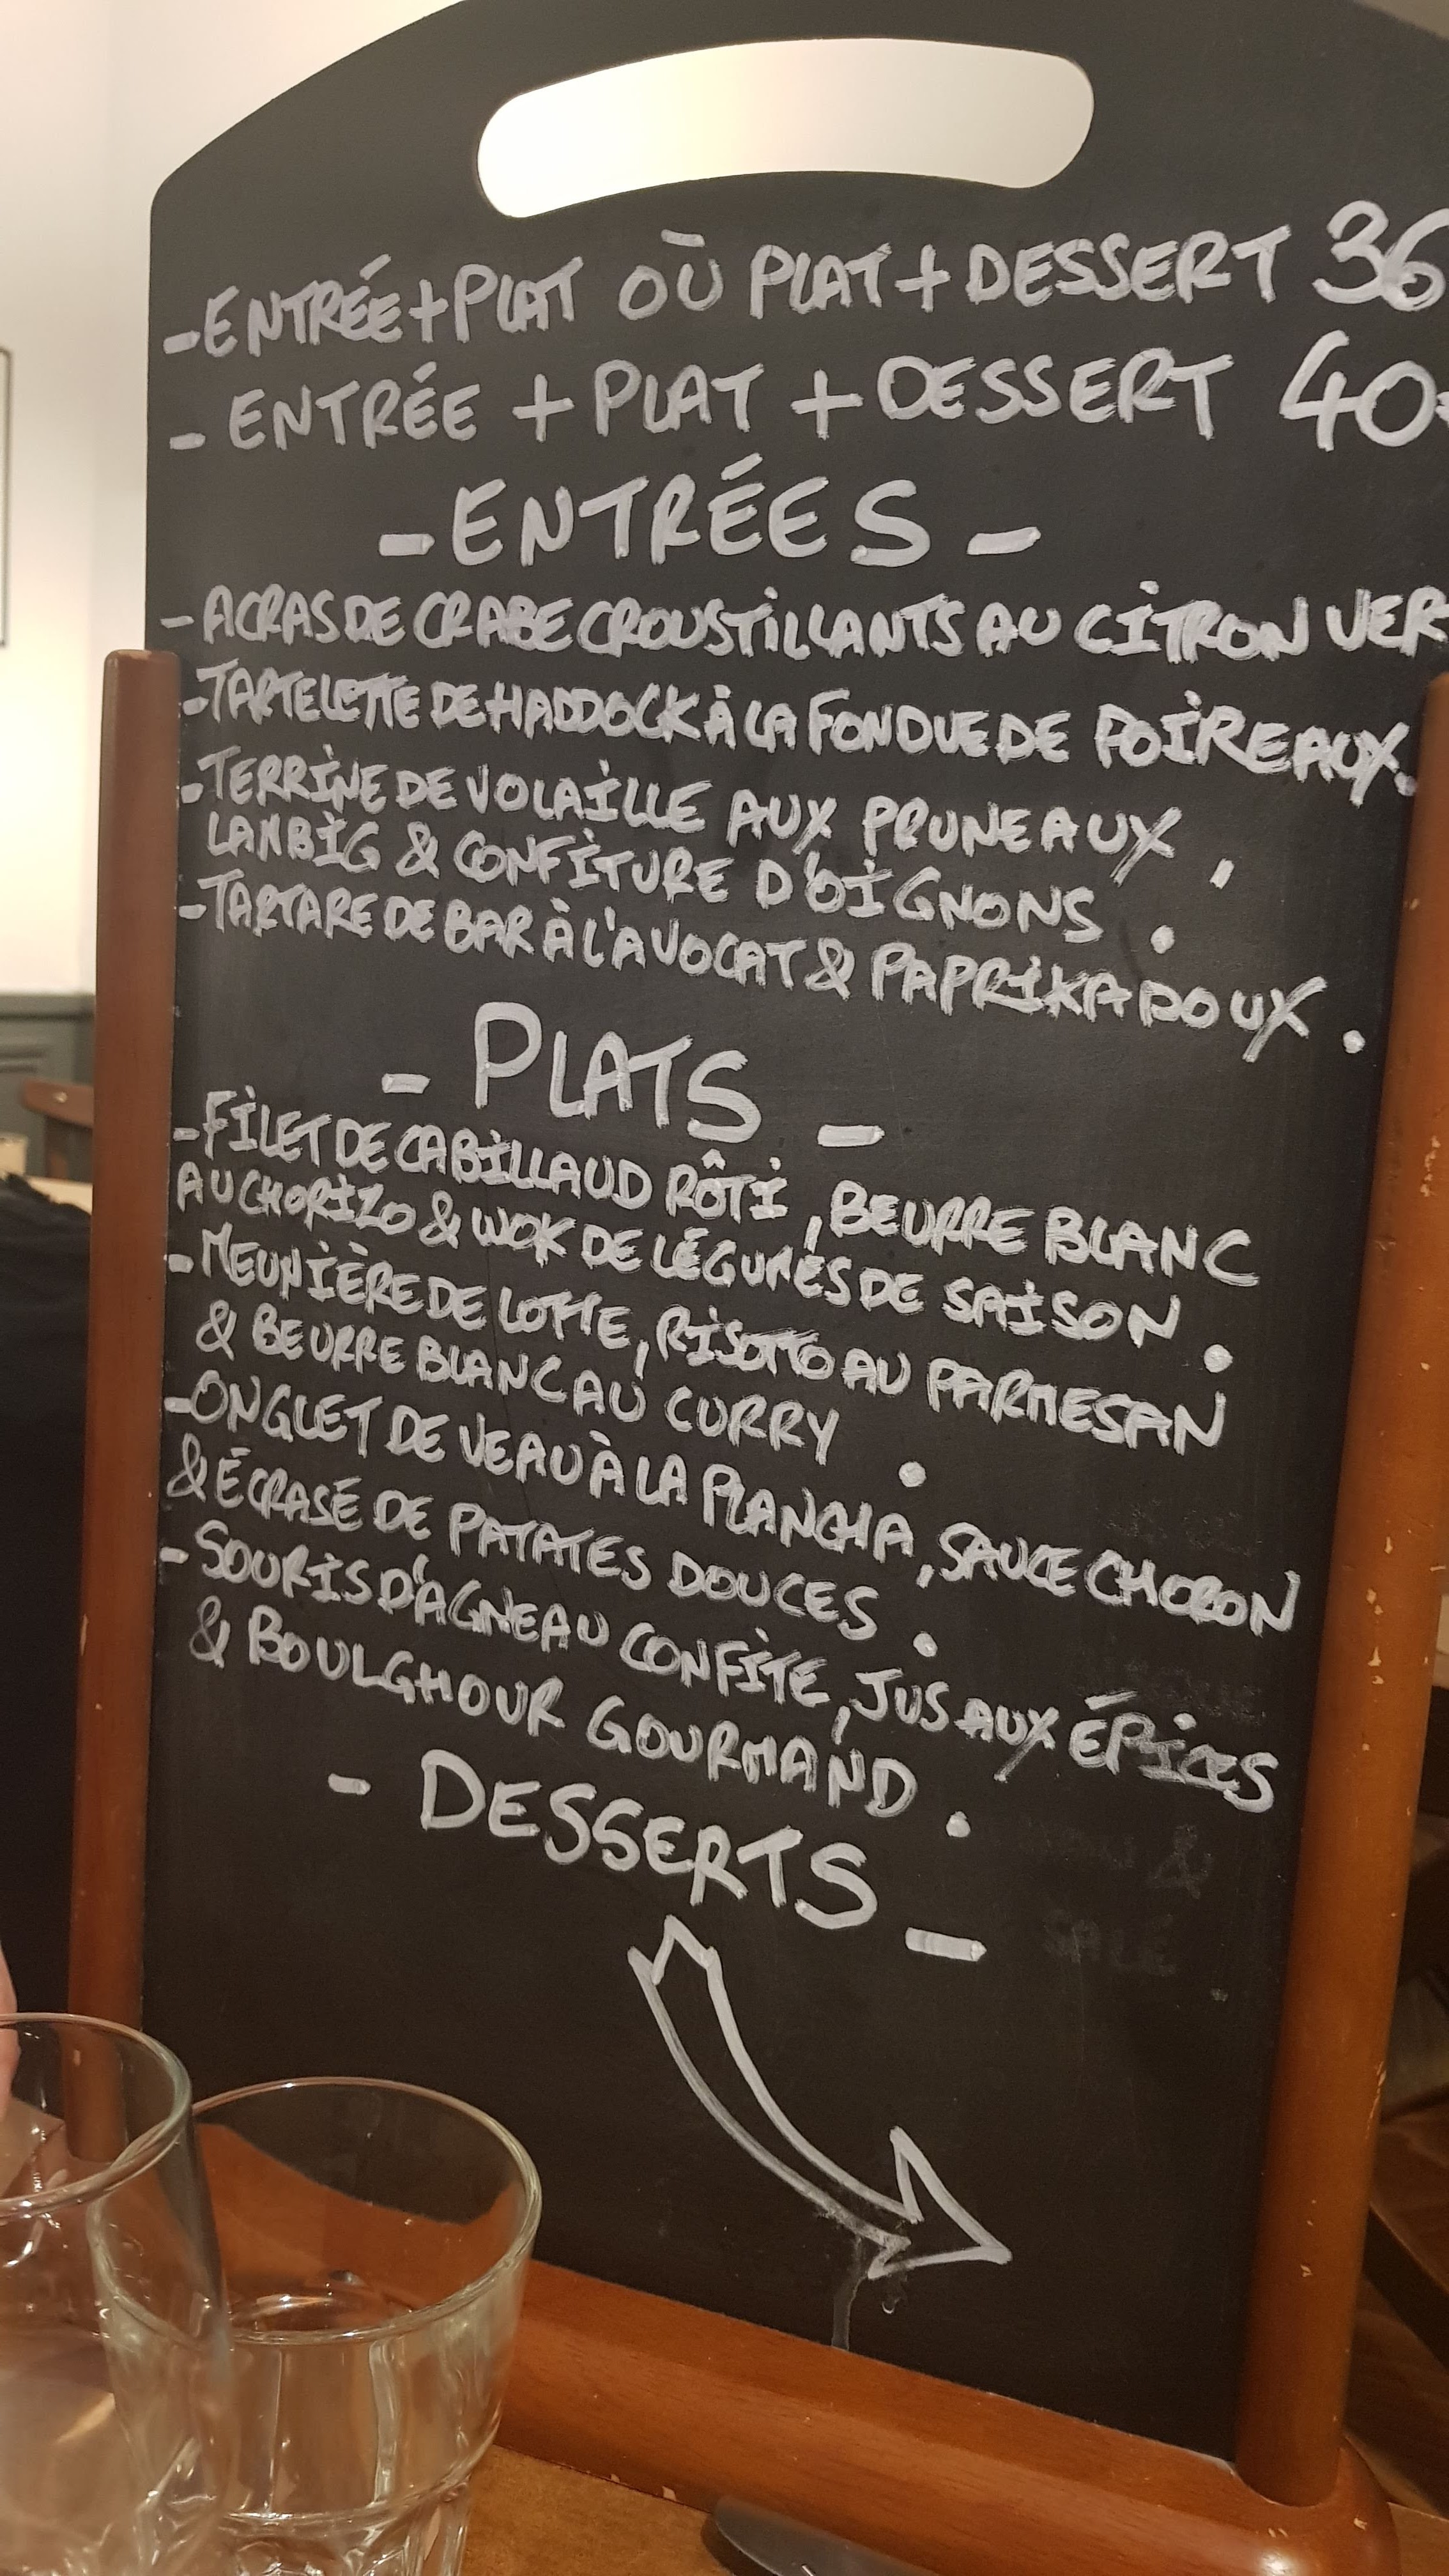 - ENTRÉE + PLAT OÙ PLAT + DESSERT 36
- ENTRÉE + PLAT + DESSERT 40
- ENTRÉES -
- ACRAS DE CRABE CROUSTILLANTS AU CITRON VER
- TARTELETTE DE HADDOCK À LA FONDUE DE POIREAUX.
- TERRINE DE VOLAILLE AUX PRUNEAUX,
LAMBIG & CONFITURE D'OIGNONS.
- TARTARE DE BAR À L'AVOCAT & PAPRIKA DOUX.
- PLATS -
- FILET DE CABILLAUD RÔTI, BEURRE BLANC
AU CHORIZO & WOK DE LÉGUMES DE SAISON.
- MEUNIÈRE DE LOTTE, RISOTTO AU PARMESAN
& BEURRE BLANC AU CURRY.
- ONGLET DE VEAU À LA PLANCHA, SAUCE CHORON
& ÉCRASÉ DE PATATES DOUCES.
- SOURIS D'AGNEAU CONFITE, JUS AUX ÉPICES
& BOULGHOUR GOURMAND.
- DESSERTS -